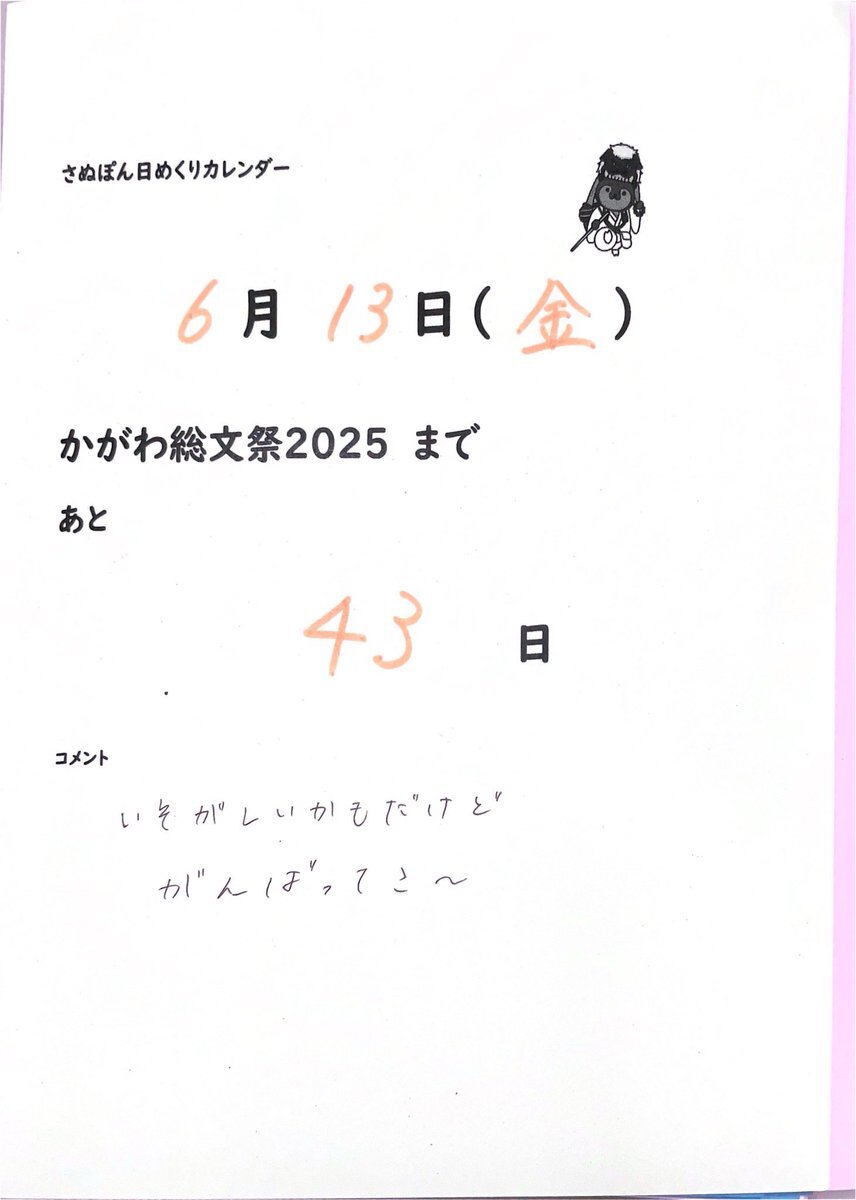 さぬぽん日めくりカレンダー
6月 13日(金)
かがわ総文祭2025 まで
あと
43 日
コメント
いそがしいかもだけど
がんばってこ〜